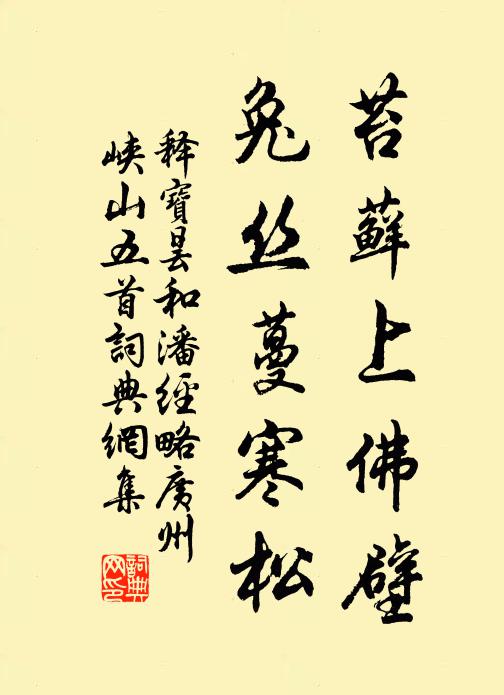 苔蘚上佛壁
兔丝蔓寒松
释寶曇和潘經略廣州
峡山五首詞典網集
詞典
网印